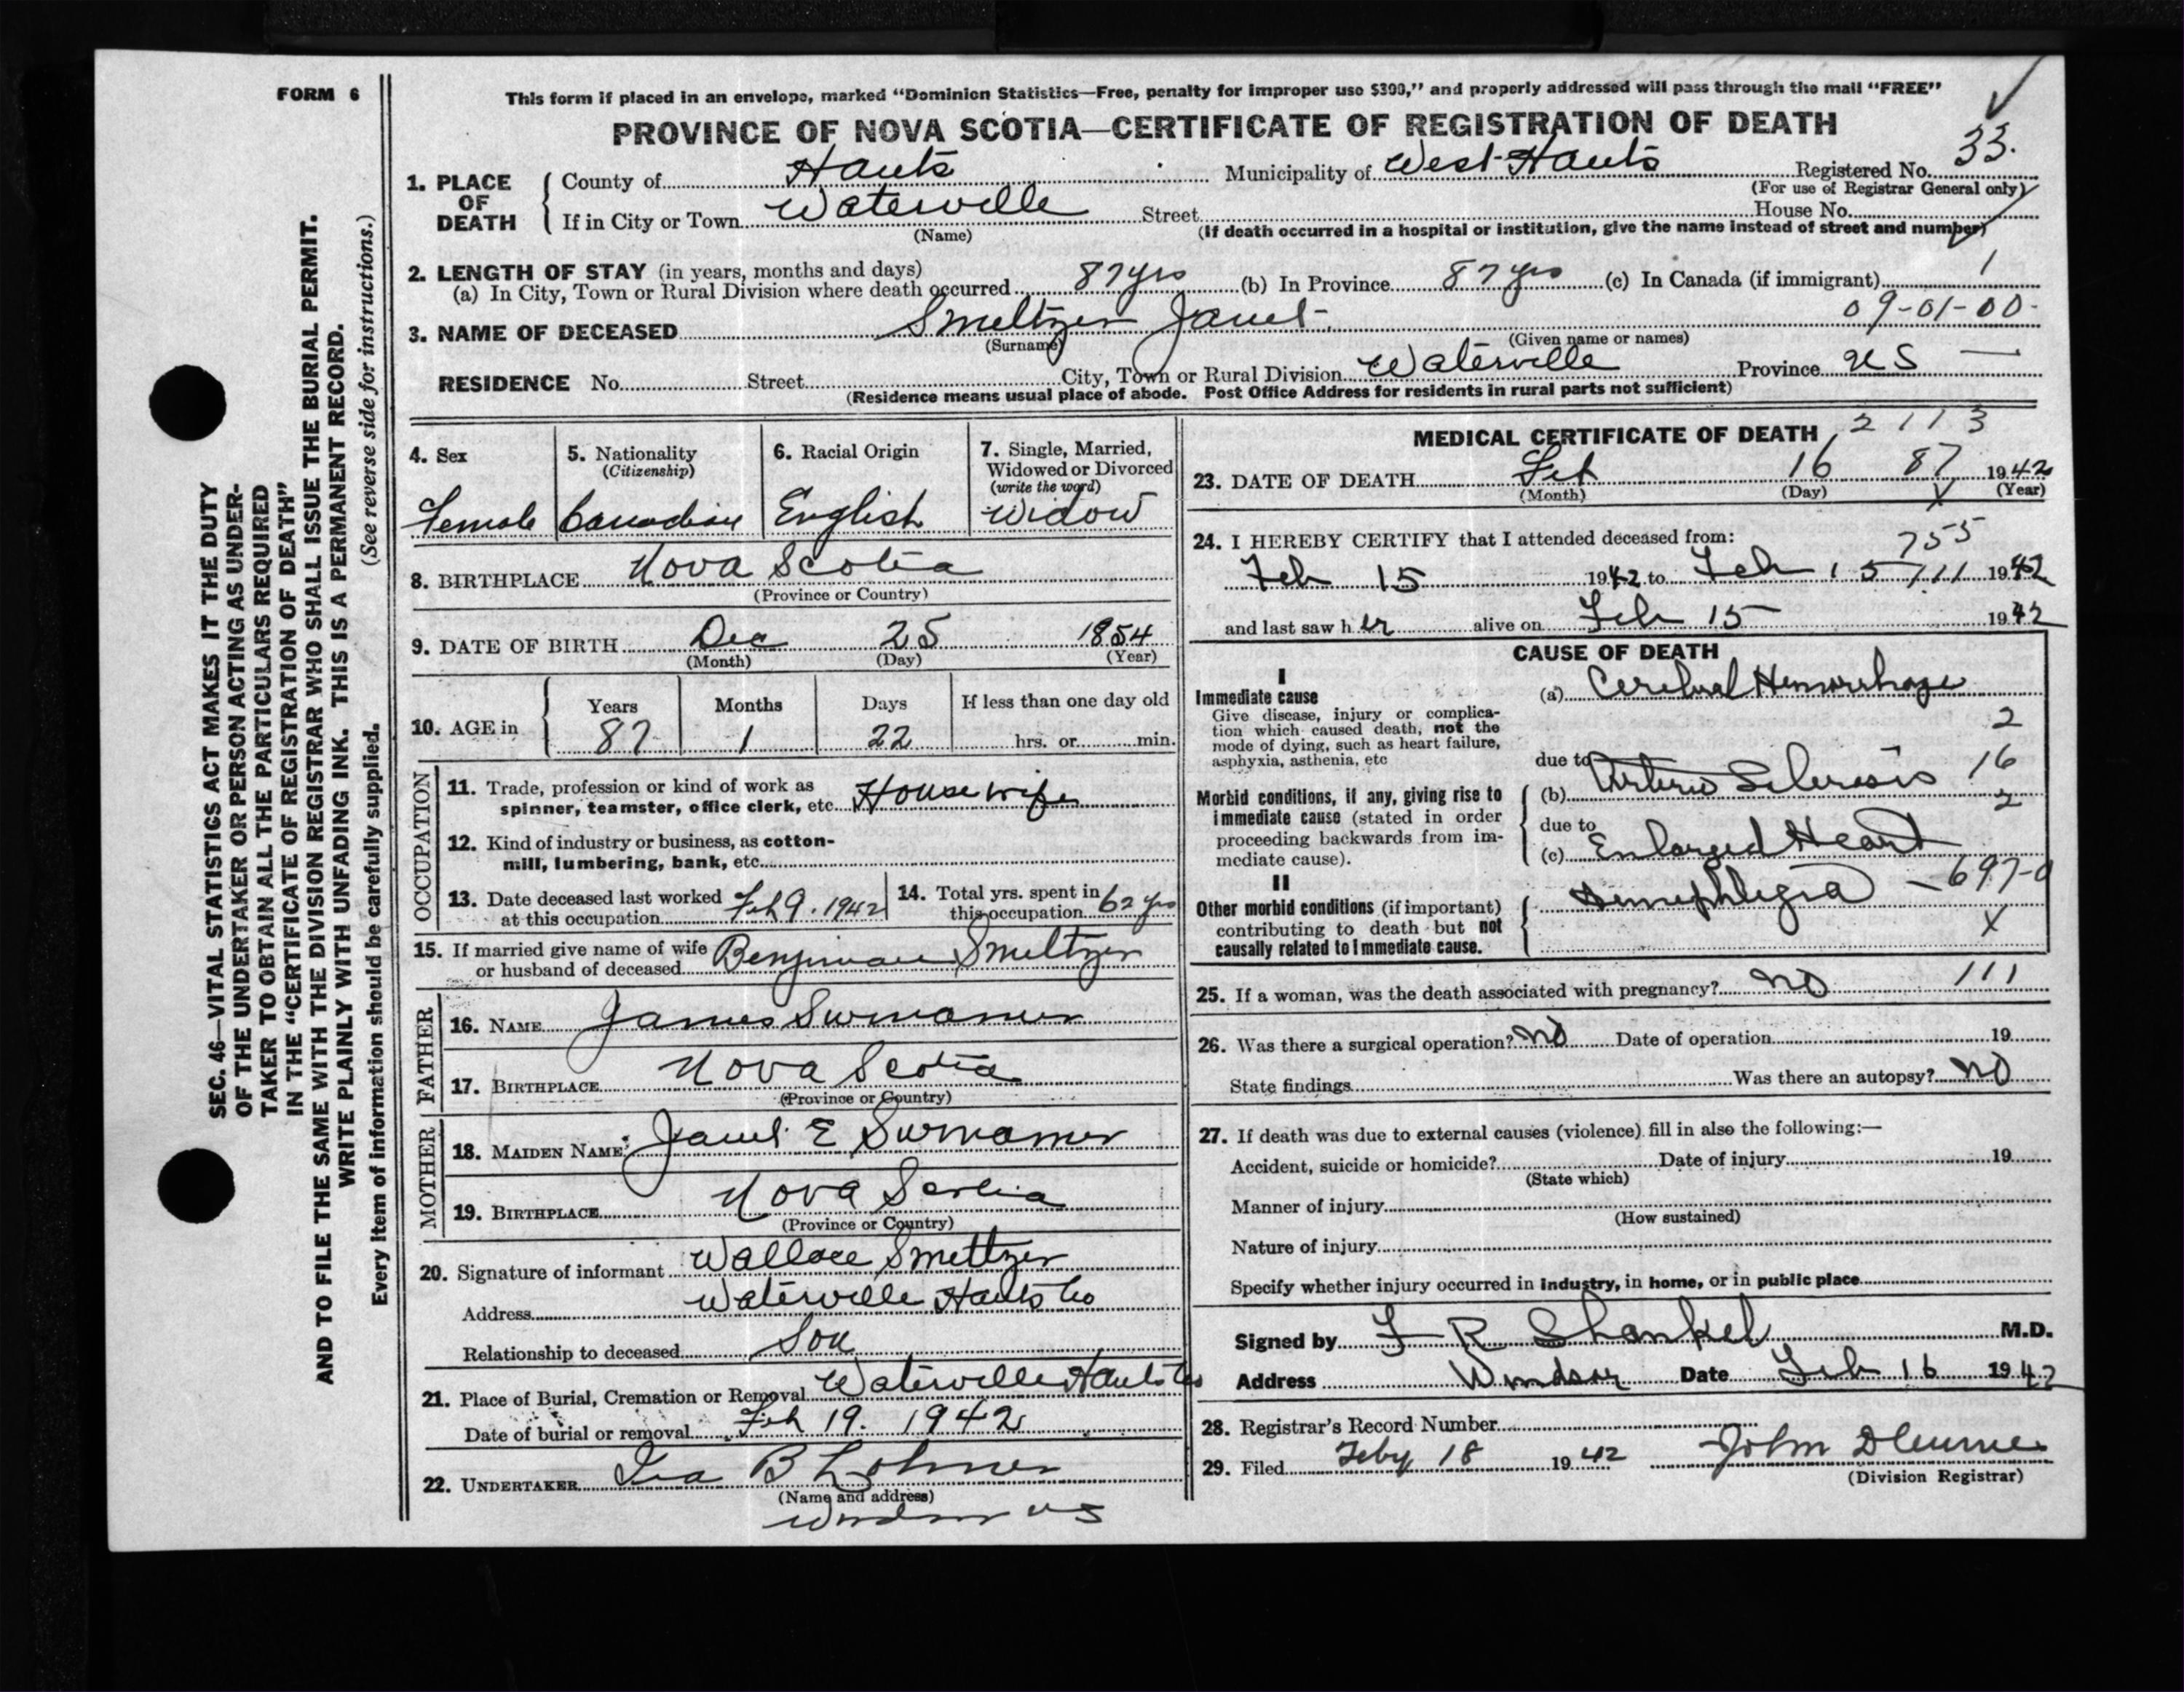 FORM 6
This form if placed in an envelope, marked "Dominion Statistics—Free, penalty for improper use $300," and properly addressed will pass through the mail "FREE"
PROVINCE OF NOVA SCOTIA—CERTIFICATE OF REGISTRATION OF DEATH
1. PLACE OF DEATH
County of Hants Municipality of West Hants Registered No. 33.
(For use of Registrar General only)
If in City or Town Waterville Street House No.
(Name) (If death occurred in a hospital or institution, give the name instead of street and number)
2. LENGTH OF STAY (in years, months and days)
(a) In City, Town or Rural Division where death occurred 87 yrs (b) In Province 87 yrs (c) In Canada (if immigrant) 1
09-01-00-
3. NAME OF DECEASED Smeltzer Janet
(Surname) (Given name or names)
RESIDENCE No. Street City, Town or Rural Division Waterville Province NS —
(Residence means usual place of abode. Post Office Address for residents in rural parts not sufficient)
4. Sex
Female
5. Nationality
(Citizenship)
Canadian
6. Racial Origin
English
7. Single, Married,
Widowed or Divorced
(write the word)
Widow
8. BIRTHPLACE Nova Scotia
(Province or Country)
9. DATE OF BIRTH Dec 25 1854
(Month) (Day) (Year)
10. AGE in
Years Months Days If less than one day old
87 1 22 hrs. or min.
OCCUPATION
11. Trade, profession or kind of work as
spinner, teamster, office clerk, etc. House wife
12. Kind of industry or business, as cotton-
mill, lumbering, bank, etc.
13. Date deceased last worked
at this occupation Feb 9. 1942
14. Total yrs. spent in
this occupation 62 yrs
15. If married give name of wife
or husband of deceased Benjiman Smeltzer
FATHER
16. NAME James Surnamer
17. BIRTHPLACE Nova Scotia
(Province or Country)
MOTHER
18. MAIDEN NAME Janet E Surnamer
19. BIRTHPLACE Nova Scotia
(Province or Country)
20. Signature of informant Wallace Smeltzer
Address Waterville Hants Co
Relationship to deceased Son
21. Place of Burial, Cremation or Removal Waterville Hants Co
Date of burial or removal Feb 19. 1942
22. UNDERTAKER Ira B Lohnes
(Name and address)
Windsor NS
MEDICAL CERTIFICATE OF DEATH 2113
23. DATE OF DEATH Feb 16 87 1942
(Month) (Day) (Year)
24. I HEREBY CERTIFY that I attended deceased from: 755
Feb 15 1942 to Feb 15 111 1942
and last saw her alive on Feb 15 1942
CAUSE OF DEATH
I
Immediate cause
Give disease, injury or complica-
tion which caused death, not the
mode of dying, such as heart failure,
asphyxia, asthenia, etc
(a) Cerebral Hemorrhage
2
due to
Morbid conditions, if any, giving rise to
immediate cause (stated in order
proceeding backwards from im-
mediate cause).
(b) Arterio Sclerosis 16
2
due to
(c) Enlarged Heart
II
Other morbid conditions (if important)
contributing to death but not
causally related to immediate cause.
Hemephlegia — 697-0
X
25. If a woman, was the death associated with pregnancy? NO 111
26. Was there a surgical operation? NO Date of operation 19
State findings Was there an autopsy? NO
27. If death was due to external causes (violence) fill in also the following:—
Accident, suicide or homicide? Date of injury 19
(State which)
Manner of injury
(How sustained)
Nature of injury
Specify whether injury occurred in industry, in home, or in public place
Signed by F R Shankel M.D.
Address Windsor Date Feb 16 1942
28. Registrar's Record Number
29. Filed Feby 18 1942 John
(Division Registrar)
SEC. 46—VITAL STATISTICS ACT MAKES IT THE DUTY
OF THE UNDERTAKER OR PERSON ACTING AS UNDER-
TAKER TO OBTAIN ALL THE PARTICULARS REQUIRED
IN THE "CERTIFICATE OF REGISTRATION OF DEATH"
AND TO FILE THE SAME WITH THE DIVISION REGISTRAR WHO SHALL ISSUE THE BURIAL PERMIT.
WRITE PLAINLY WITH UNFADING INK. THIS IS A PERMANENT RECORD.
(See reverse side for instructions.)
Every item of information should be carefully supplied.